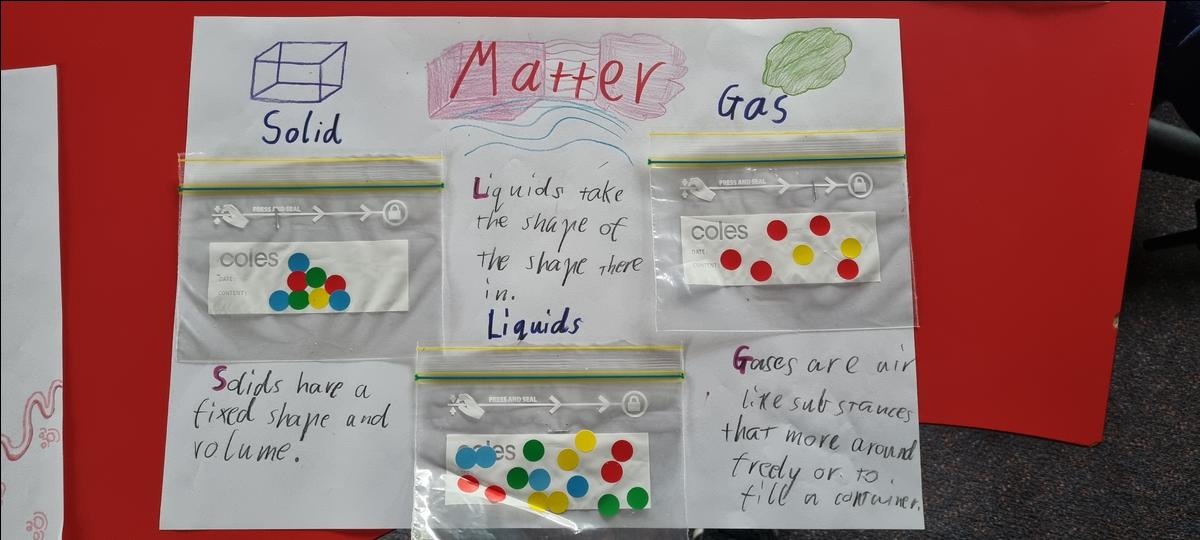 Matter
Solid
Gas
PRESS AND SEAL
coles
DATE:
CONTENT:
Solids have a
fixed shape and
volume.
Liquids take
the shape of
the shape there
in.
Liquids
PRESS AND SEAL
coles
PRESS AND SEAL
coles
DATE:
CONTENT:
Gases are air
like substances
that move around
freely or to
fill a container.